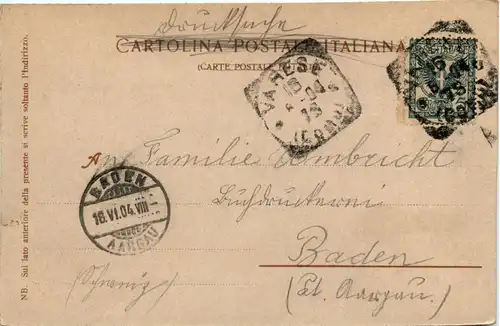 Drucksache
CARTOLINA POSTALE ITALIANA
(CARTE POSTALE
VARESE
15
6 04
13
BADEN
16.VI.04.VIII
AARGAU
An Familie Umbricht
Buchdruckerei
Baden
(Schweiz)
(Kt. Aargau.)
NB. Sul lato anteriore della presente si scrive soltanto l'indirizzo.